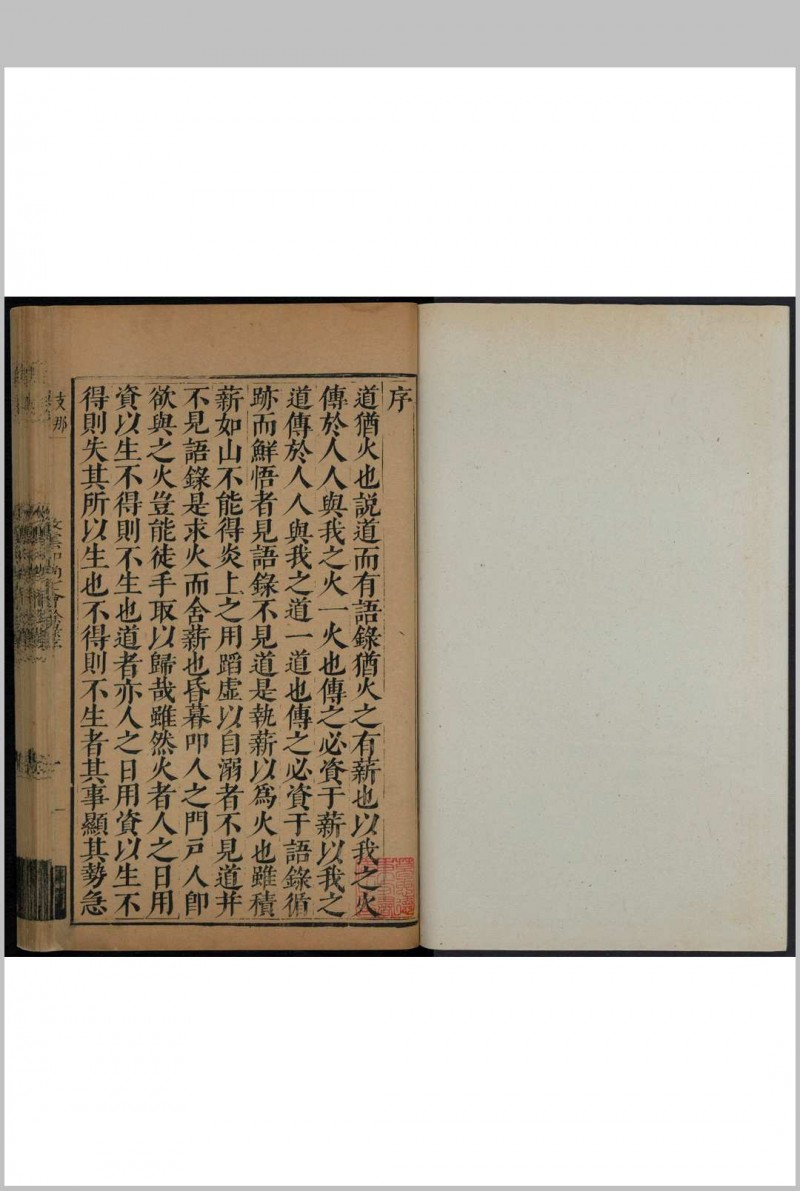 序
道猶火也說道而有語錄猶火之有薪也以我之火
傳於人人與我之火一火也傳之必資于薪以我之
道傳於人人與我之道一道也傳之必資于語錄循
跡而鮮悟者見語錄不見道是執薪以爲火也雖積
薪如山不能得炎上之用蹈虛以自溺者不見道幷
不見語錄是求火而舍薪也昏暮叩人之門戶人卽
欲與之火豈能徒手取以歸哉雖然火者人之日用
資以生不得則不生也道者亦人之日用資以生不
得則失其所以生也不得則不生者其事顯其勢急
支那